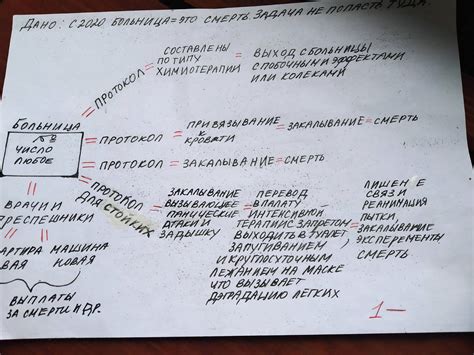 ДАНО: С 2020 БОЛЬНИЦА = ЭТО СМЕРТЬ. ЗАДАЧА НЕ ПОПАСТЬ ТУДА.
БОЛЬНИЦА
ЧИСЛО
ЛЮБОЕ
= ПРОТОКОЛ =
СОСТАВЛЕНЫ
ПО ТИПУ
ХИМИОТЕРАПИИ
=
ВЫХОД С БОЛЬНИЦЫ
С ПОБОЧНЫМИ ЭФФЕКТАМИ
ИЛИ КОЛЕКАМИ
= ПРОТОКОЛ = ПРИВЯЗЫВАНИЕ
К
КРОВАТИ
= ЗАКАЛЫВАНИЕ = СМЕРТЬ
= ПРОТОКОЛ = ЗАКАЛЫВАНИЕ = СМЕРТЬ
= ПРОТОКОЛ =
ДЛЯ СТОЙКИХ
ЗАКАЛЫВАНИЕ
ВЫЗЫВАЮЩЕЕ
ПАНИЧЕСКИЕ
АТАКИ И
ЗАДЫШКУ
=
ПЕРЕВОД
В ПАЛАТУ
ИНТЕНСИВНОЙ
ТЕРАПИИ С ЗАПРЕТОМ
ВЫХОДИТЬ В ТУАЛЕТ
ЗАПУГИВАНИЕМ
И КРУГЛОСУТОЧНЫМ
ЛЕЖАНИЕМ НА МАСКЕ
ЧТО ВЫЗЫВАЕТ
ДЭГРАДАЦИЮ ЛЕГКИХ
=
ЛИШЕНИЕ
СВЯЗИ
РЕАНИМАЦИЯ
ПЫТКИ,
ЗАКАЛЫВАНИЕ
ЭКСПЕРЕМЕНТЫ
СМЕРТЬ
=
ВРАЧИ И
=
МАШИНА
НОВАЯ
ВЫПЛАТЫ
ЗА СМЕРТИ И ДР.
1-